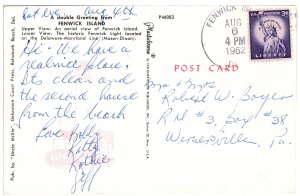 Sat eve. Aug 4th
A double Greeting from
FENWICK ISLAND
Upper View: An aerial view of Fenwick Island.
Lower View: The historic Fenwick Light located
on the Delaware-Maryland Line (Mason-Dixon).
P46003
Hi - We have a
real nice place.
Its clean and
the second house
from the beach
Love Bobby
Kitty
Kathie
Jeff
Pub. by "Uncle Willie", Delaware Coast Press, Rehoboth Beach, Del.
FENWICK IS
AUG
6
4 PM
1962
LIBERTY
POST CARD
Mr & Mrs
Robert W. Boyer
RM #3, Box #38
Wernersville, Pa.